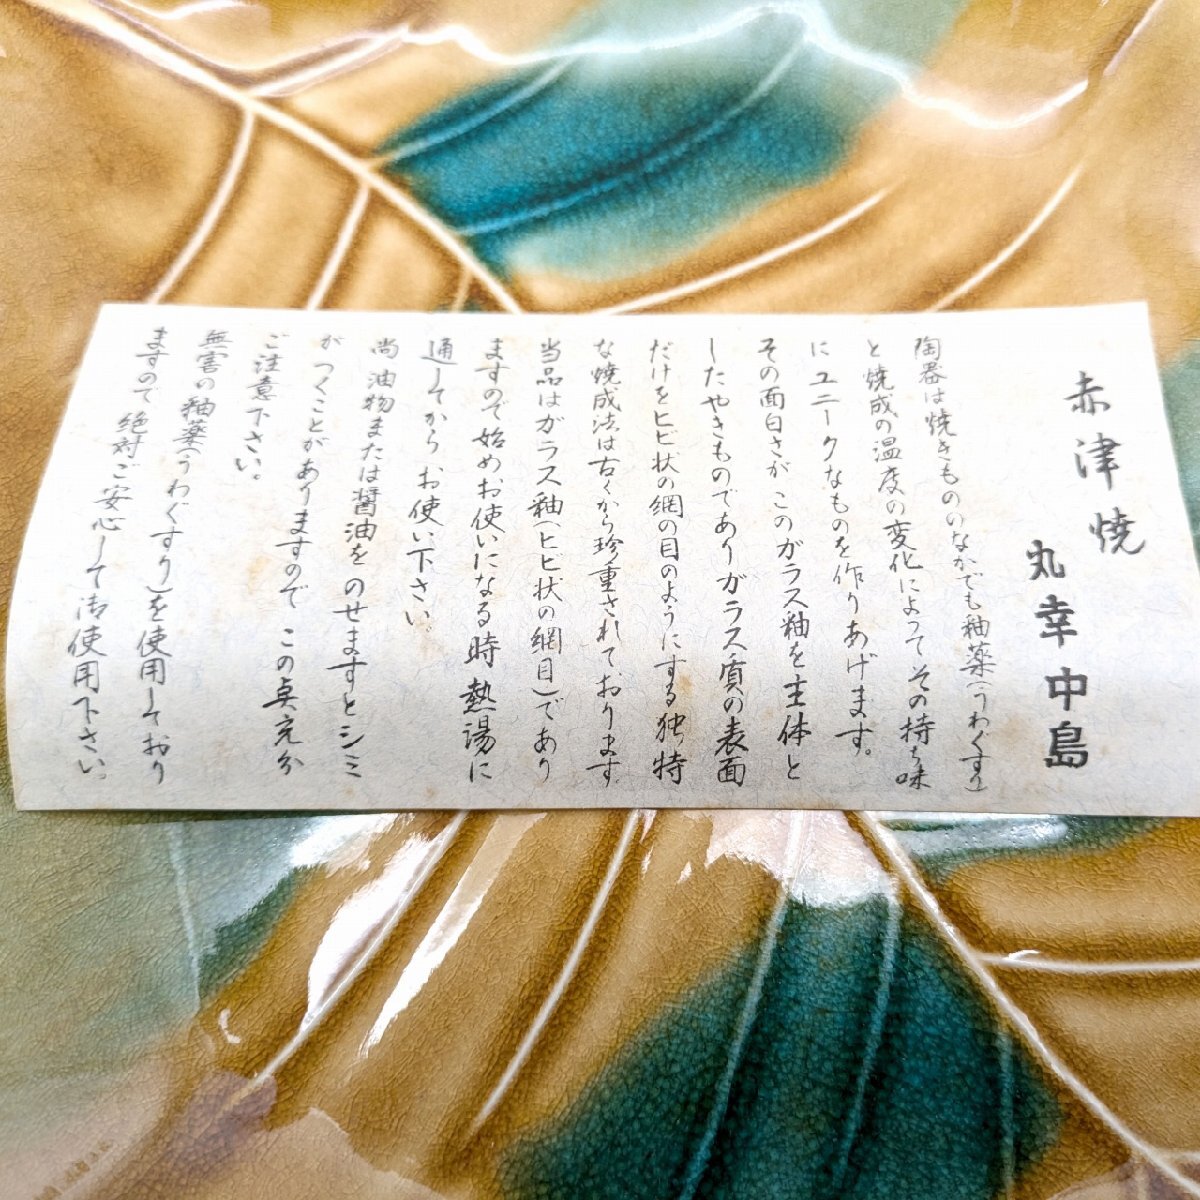 赤津焼
丸幸中島
陶器は焼きもののなかでも釉薬(うわぐすり)
と焼成の温度の変化によってその持ち味
にユニークなものを作りあげます。
その面白さがこのガラス釉を主体と
したやきものでありガラス質の表面
だけをヒビ状の網の目のようにする独特
な焼成法は古くから珍重されております
当品はガラス釉(ヒビ状の網目)であり
ますので始めお使いになる時熱湯に
通してからお使い下さい。
尚油物または醤油をのせますとシミ
がつくことがありますのでこの点充分
ご注意下さい。
無害の釉薬(うわぐすり)を使用しており
ますので絶対ご安心して御使用下さい。